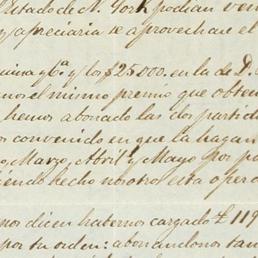 Estado de N. York podian ven
y apreciaria se aprovechase el
quina y 6ª y los $25.000. en la de D.
nos el mismo premio que obten
hemos abonado las dos partid
os convenido en que la hagan
o, Marzo, Abril y Mayo por po
iendo hecho nosotros esta opera
nos dicen habernos cargado £119
por su orden: abonandonos tan